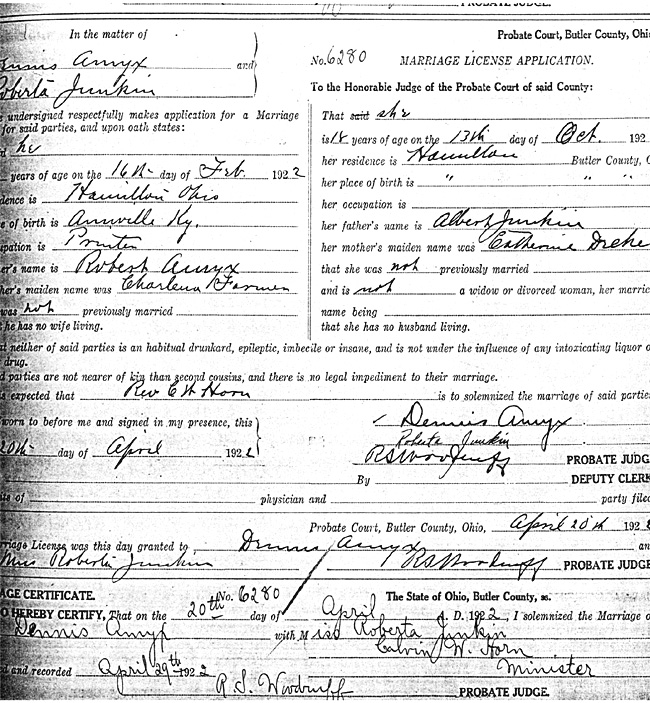 PROBATE JUDGE.
In the matter of
Dennis Amyx and
Roberta Junkin
undersigned respectfully makes application for a Marriage
for said parties, and upon oath states:
he
years of age on the 16th day of Feb. 1922
dence is Hamilton Ohio
e of birth is Annville Ky.
upation is Printer
er's name is Robert Amyx
her's maiden name was Charlena Farmer
was not previously married
t he has no wife living.
Probate Court, Butler County, Ohio
No. 6280 MARRIAGE LICENSE APPLICATION.
To the Honorable Judge of the Probate Court of said County:
That said she
is 18 years of age on the 13th day of Oct. 192
her residence is Hamilton Butler County, O
her place of birth is " " "
her occupation is
her father's name is Albert Junkin
her mother's maiden name was Catherine
that she was not previously married
and is not a widow or divorced woman, her married
name being
that she has no husband living.
t neither of said parties is an habitual drunkard, epileptic, imbecile or insane, and is not under the influence of any intoxicating liquor o
drug.
d parties are not nearer of kin than second cousins, and there is no legal impediment to their marriage.
s expected that Rev C W Horn is to solemnized the marriage of said parties
worn to before me and signed in my presence, this
20th day of April 1922
Dennis Amyx
Roberta Junkin
R S Woodruff PROBATE JUDGE
By DEPUTY CLERK
te of physician and party filed
Probate Court, Butler County, Ohio, April 20th 1922
rriage License was this day granted to Dennis Amyx an
Miss Roberta Junkin R S Woodruff PROBATE JUDGE
AGE CERTIFICATE. No. 6280 The State of Ohio, Butler County, ss.
O HEREBY CERTIFY, That on the 20th day of April A. D. 1922, I solemnized the Marriage o
Dennis Amyx with Miss Roberta Junkin
Calvin W. Horn
Minister
d and recorded April 29th 1922
R. S. Woodruff PROBATE JUDGE.